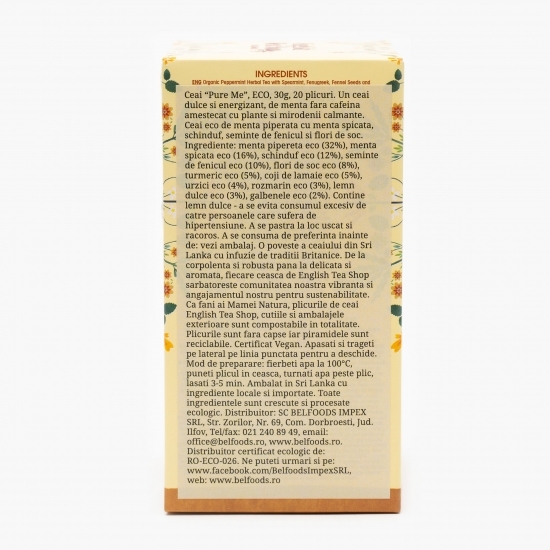 INGREDIENTS
ENG Organic Peppermint Herbal Tea with Spearmint, Fenugreek, Fennel Seeds and
Ceai “Pure Me”, ECO, 30g, 20 plicuri. Un ceai
dulce si energizant, de menta fara cafeina
amestecat cu plante si mirodenii calmante.
Ceai eco de menta piperata cu menta spicata,
schinduf, seminte de fenicul si flori de soc.
Ingrediente: menta pipereta eco (32%), menta
spicata eco (16%), schinduf eco (12%), seminte
de fenicul eco (10%), flori de soc eco (8%),
turmeric eco (5%), coji de lamaie eco (5%),
urzici eco (4%), rozmarin eco (3%), lemn
dulce eco (3%), galbenele eco (2%). Contine
lemn dulce - a se evita consumul excesiv de
catre persoanele care sufera de
hipertensiune. A se pastra la loc uscat si
racoros. A se consuma de preferinta inainte
de: vezi ambalaj. O poveste a ceaiului din Sri
Lanka cu infuzie de traditii Britanice. De la
corpolenta si robusta pana la delicata si
aromata, fiecare ceasca de English Tea Shop
sarbatoreste comunitatea noastra vibranta si
angajamentul nostru pentru sustenabilitate.
Ca fani ai Mamei Natura, plicurile de ceai
English Tea Shop, cutiile si ambalajele
exterioare sunt compostabile in totalitate.
Plicurile sunt fara capse iar piramidele sunt
reciclabile. Certificat Vegan. Apasati si trageti
pe lateral pe linia punctata pentru a deschide.
Mod de preparare: fierbeti apa la 100°C,
puneti plicul in ceasca, turnati apa peste plic,
lasati 3-5 min. Ambalat in Sri Lanka cu
ingrediente locale si importate. Toate
ingredientele sunt crescute si procesate
ecologic. Distribuitor: SC BELFOODS IMPEX
SRL, Str. Zorilor, Nr. 69, Com. Dorbroesti, Jud.
Ilfov, Tel/fax: 021 240 89 49, email:
office@belfoods.ro, www.belfoods.ro.
Distribuitor certificat ecologic de:
RO-ECO-026. Ne puteti urmari si pe:
www.facebook.com/BelfoodsImpexSRL,
web: www.belfoods.ro